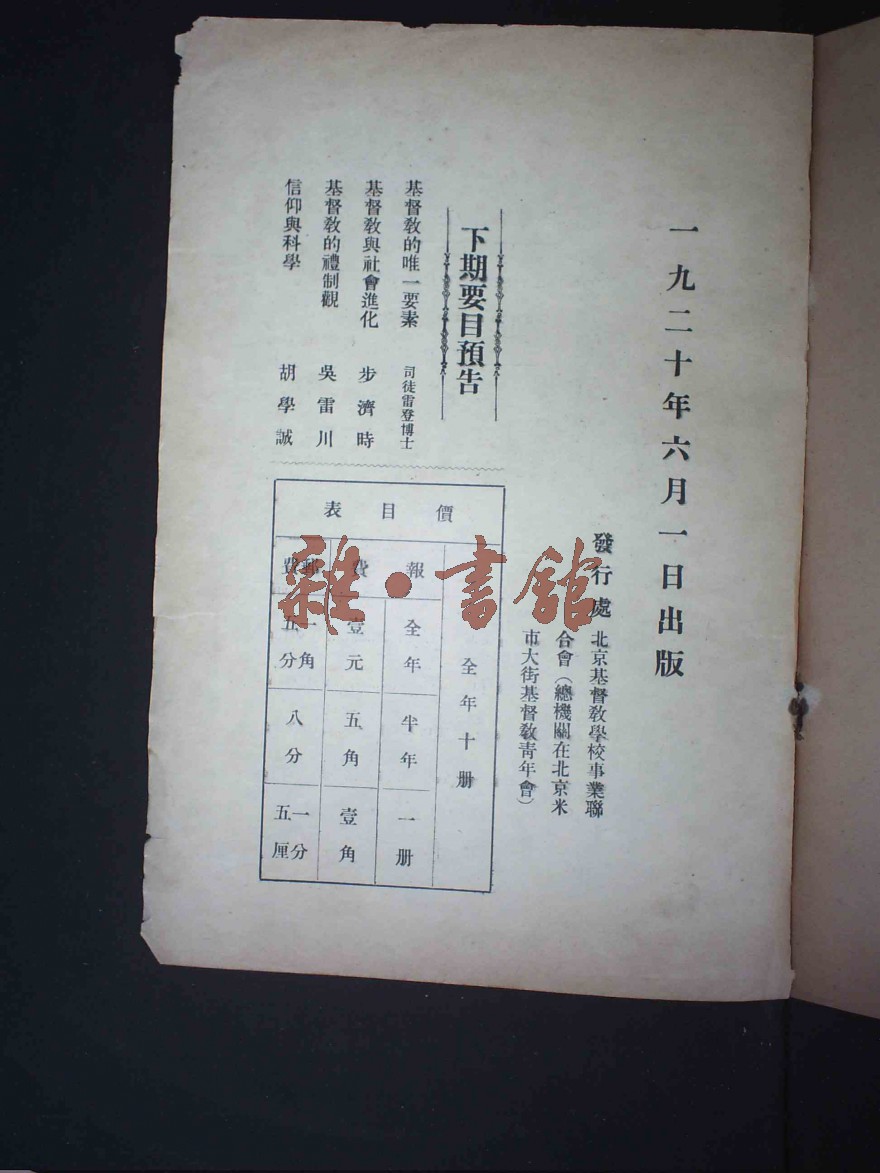 一九二十年六月一日出版
發行處 北京基督教學校事業聯
合會（總機關在北京米
市大街基督教靑年會）
下期要目預告
基督教的唯一要素 司徒雷登博士
基督教與社會進化 步濟時
基督教的禮制觀 吳雷川
信仰與科學 胡學誠
價目表
全年十册
報 全年 半年 一册
費 壹元 五角 壹角
郵費 一角五分 八分 一分五厘
雜·書館